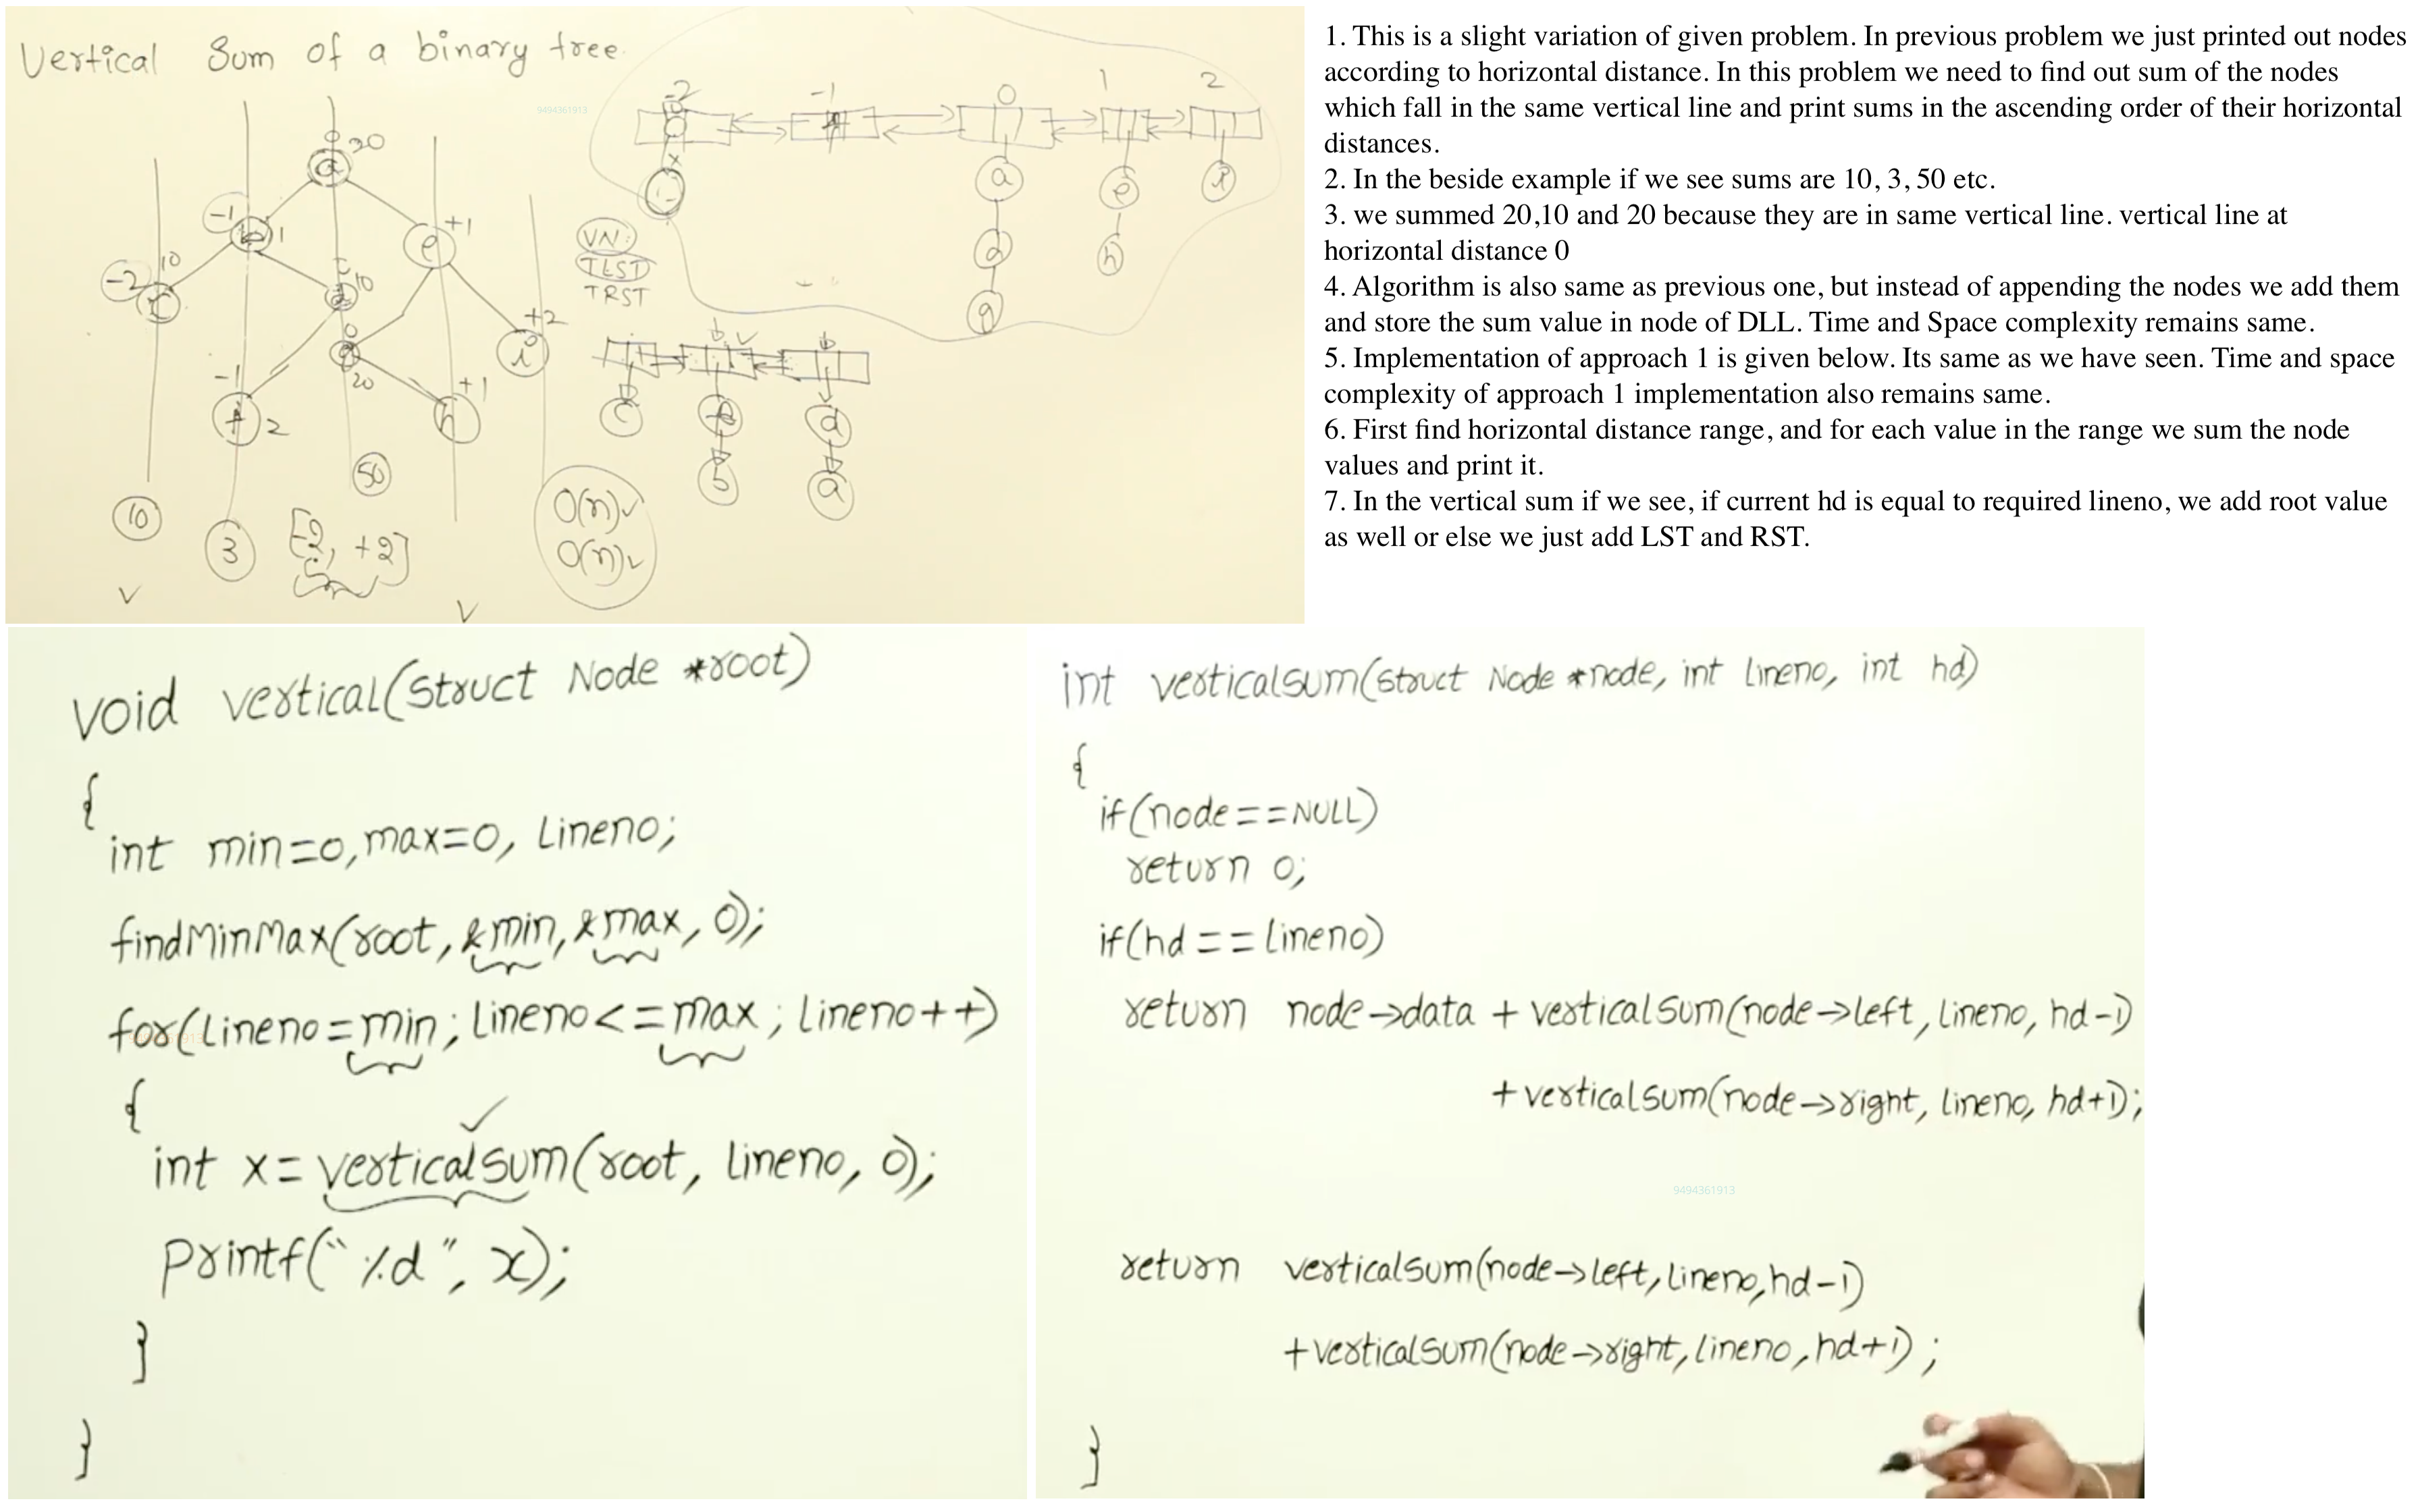 Vertical Sum of a binary tree.
9494361913
-2
-1
0
1
2
0
20
a
-1
b
1
+1
e
-2
10
c
0
10
d
0
g
20
+2
i
-1
f
2
+1
h
50
10
3
[-2, +2]
VN
TLST
TRST
a
e
i
d
h
g
c
d
b
a
O(n)
O(n)
1. This is a slight variation of given problem. In previous problem we just printed out nodes
according to horizontal distance. In this problem we need to find out sum of the nodes
which fall in the same vertical line and print sums in the ascending order of their horizontal
distances.
2. In the beside example if we see sums are 10, 3, 50 etc.
3. we summed 20,10 and 20 because they are in same vertical line. vertical line at
horizontal distance 0
4. Algorithm is also same as previous one, but instead of appending the nodes we add them
and store the sum value in node of DLL. Time and Space complexity remains same.
5. Implementation of approach 1 is given below. Its same as we have seen. Time and space
complexity of approach 1 implementation also remains same.
6. First find horizontal distance range, and for each value in the range we sum the node
values and print it.
7. In the vertical sum if we see, if current hd is equal to required lineno, we add root value
as well or else we just add LST and RST.
void vertical(struct Node *root)
{
int min=0,max=0, lineno;
findMinMax(root,&min,&max,0);
for(lineno=min;lineno<=max;lineno++)
{
int x=verticalsum(root, lineno, 0);
printf("%d", x);
}
}
int verticalsum(struct Node *node, int lineno, int hd)
{
if(node==NULL)
return 0;
if(hd==lineno)
return node->data + verticalsum(node->left,lineno,hd-1)
+verticalsum(node->right, lineno, hd+1);
9494361913
return verticalsum(node->left,lineno,hd-1)
+verticalsum(node->right,lineno,hd+1);
}